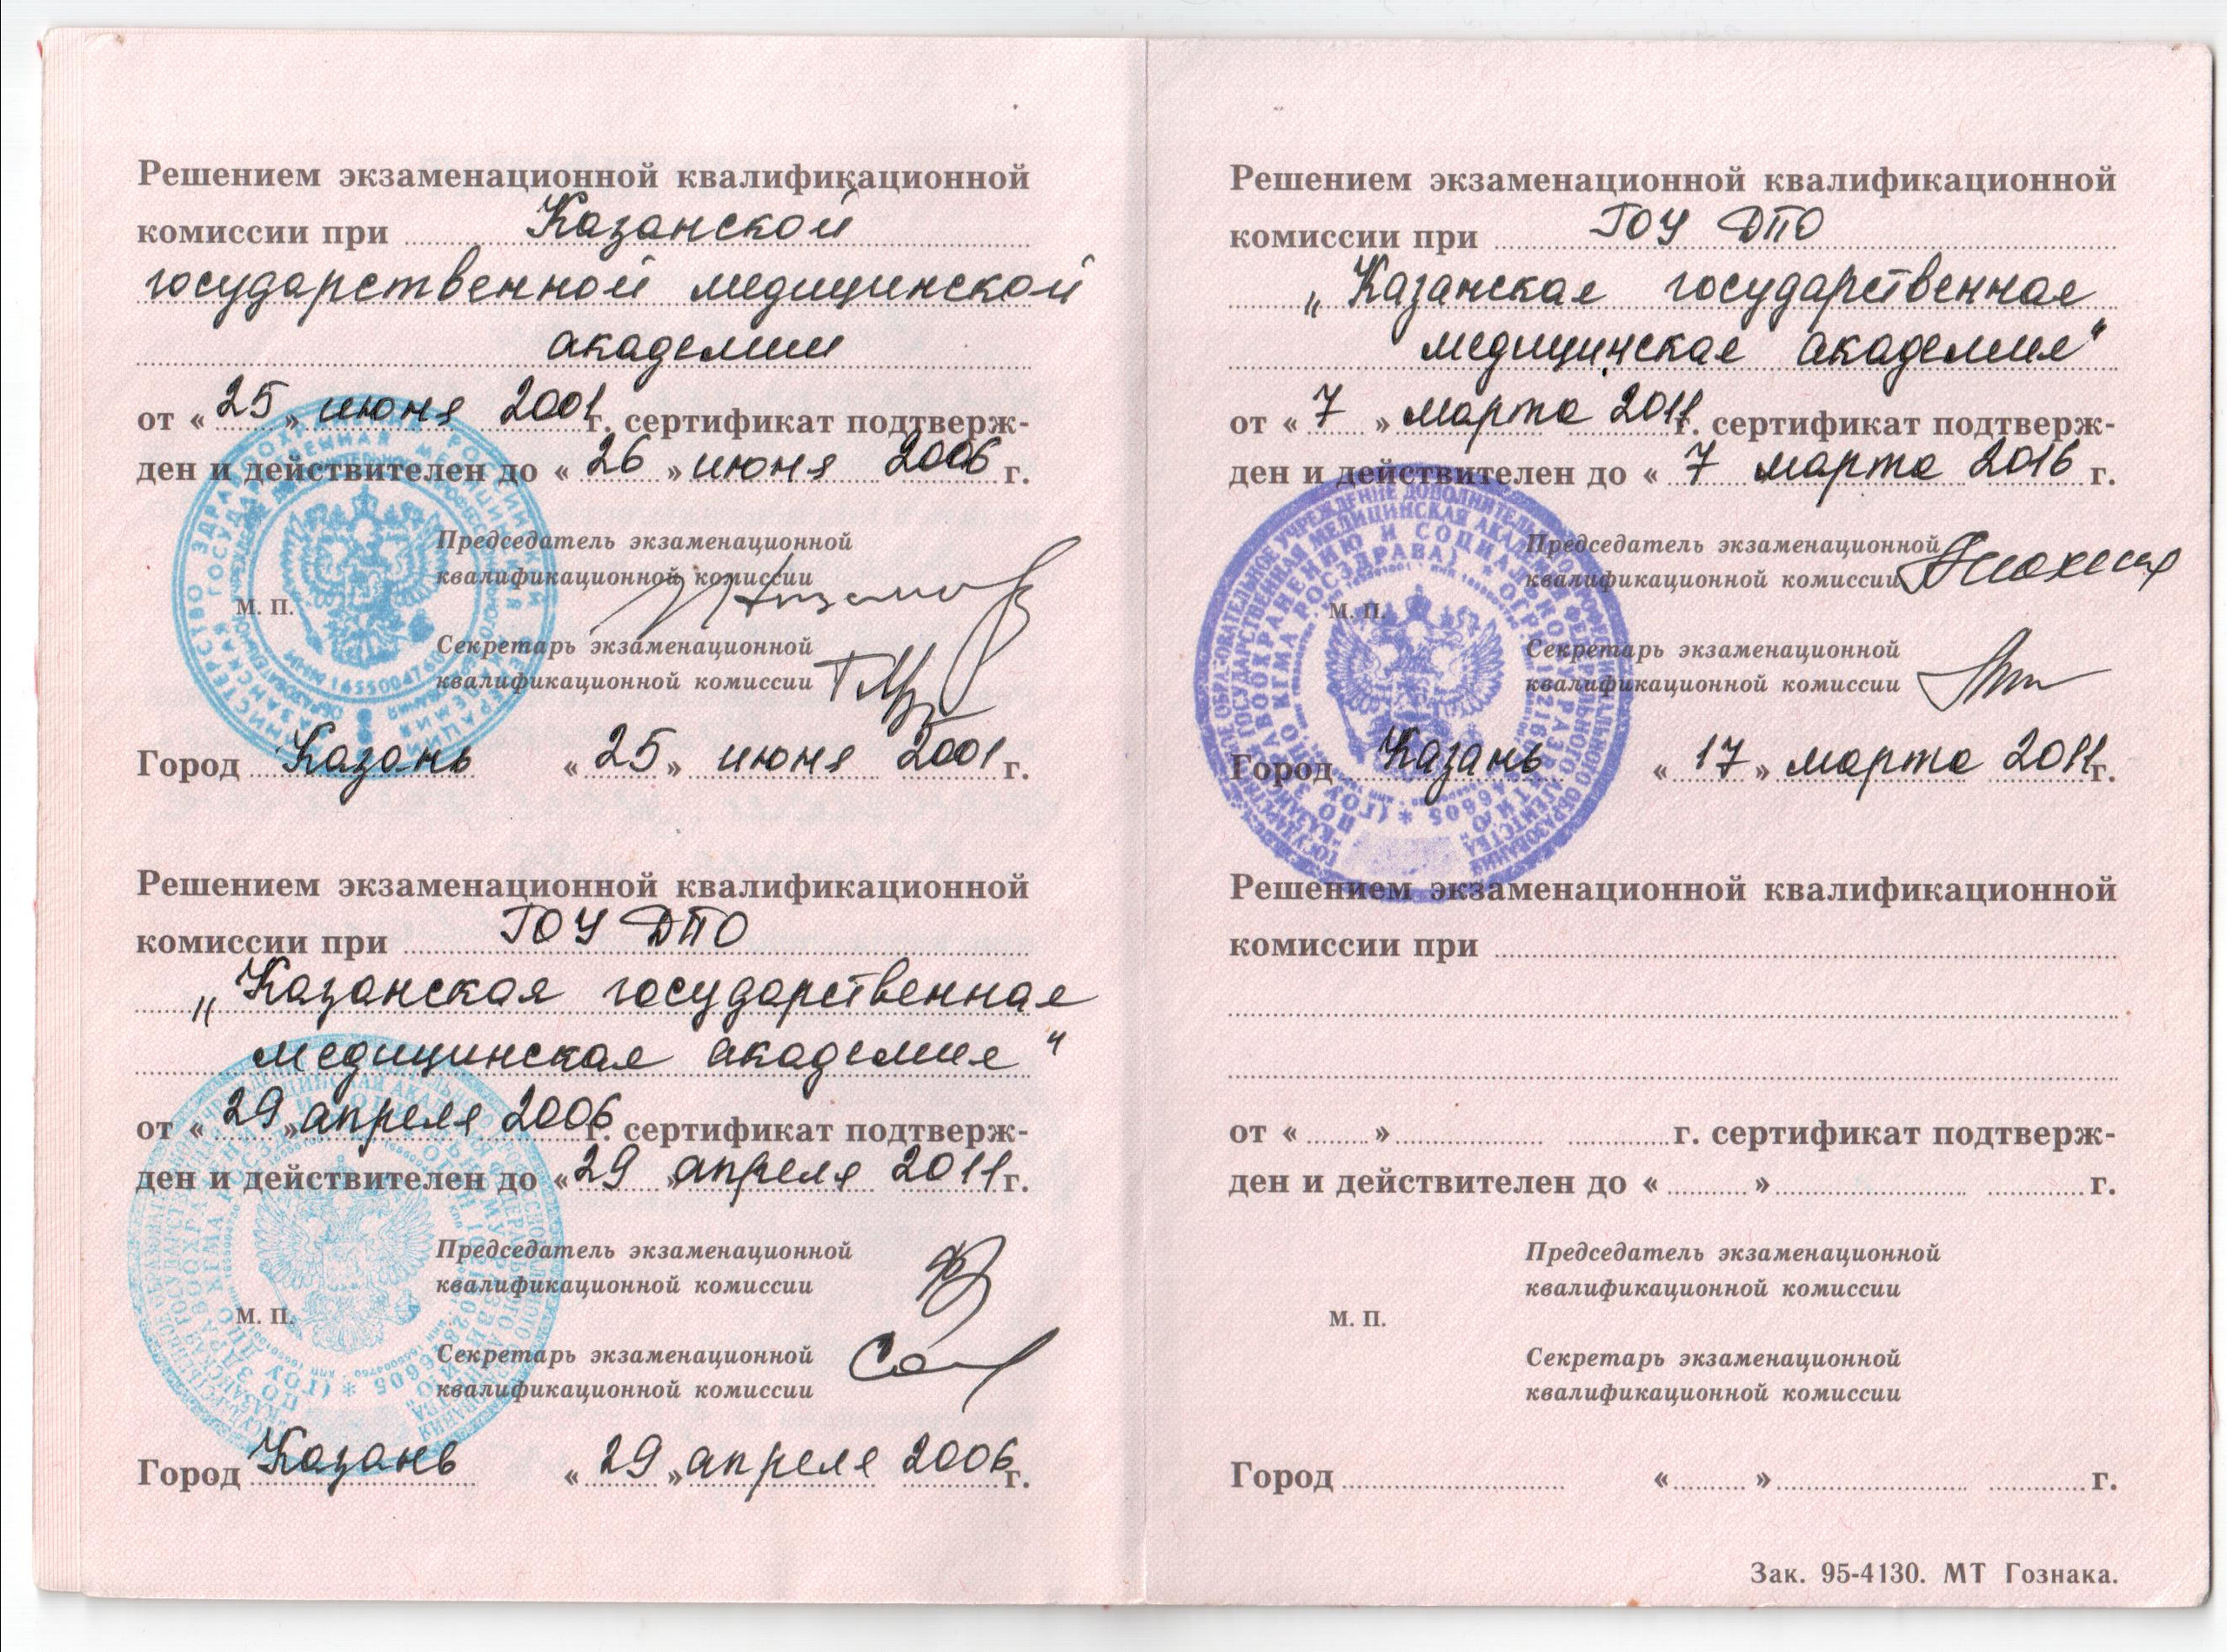 Решением экзаменационной квалификационной
комиссии при Казанской
государственной медицинской
академии
от « 25 » июня 2001 г. сертификат подтверж-
ден и действителен до « 26 » июня 2006 г.
Председатель экзаменационной
квалификационной комиссии
М. П.
Секретарь экзаменационной
квалификационной комиссии
Город Казань « 25 » июня 2001 г.
Решением экзаменационной квалификационной
комиссии при ГОУ ДПО
„Казанская государственная
медицинская академия“
от « 29 » апреля 2006 г. сертификат подтверж-
ден и действителен до « 29 » апреля 2011 г.
Председатель экзаменационной
квалификационной комиссии
М. П.
Секретарь экзаменационной
квалификационной комиссии
Город Казань « 29 » апреля 2006 г.
Решением экзаменационной квалификационной
комиссии при ГОУ ДПО
„Казанская государственная
медицинская академия“
от « 7 » марта 2011 г. сертификат подтверж-
ден и действителен до « 7 марта 2016 г.
Председатель экзаменационной
квалификационной комиссии
М. П.
Секретарь экзаменационной
квалификационной комиссии
Город Казань « 17 » марта 2011 г.
Решением экзаменационной квалификационной
комиссии при
от « » г. сертификат подтверж-
ден и действителен до « » г.
Председатель экзаменационной
квалификационной комиссии
М. П.
Секретарь экзаменационной
квалификационной комиссии
Город « » г.
Зак. 95-4130. МТ Гознака.